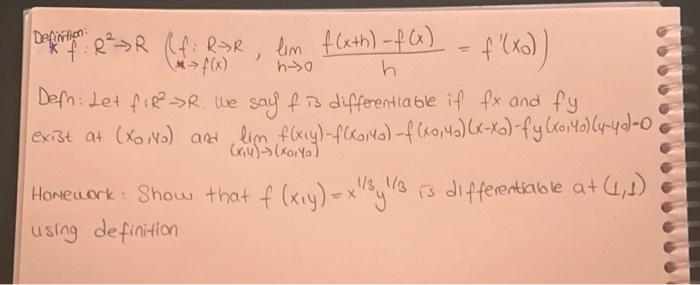 Defintion:
* f: R²→R (f: R→R, lim f(x+h)-f(x) / h = f'(x₀))
x→f(x) h→0
Defn: Let f: R²→R. We say f is differentiable if fx and fy
exist at (x₀,y₀) and lim f(x,y)-f(x₀,y₀)-f(x₀,y₀)(x-x₀)-fy(x₀,y₀)(y-y₀)=0
(x,y)→(x₀,y₀)
Homework: Show that f(x,y)=x^1/3 y^1/3 is differentiable at (1,1)
using definition